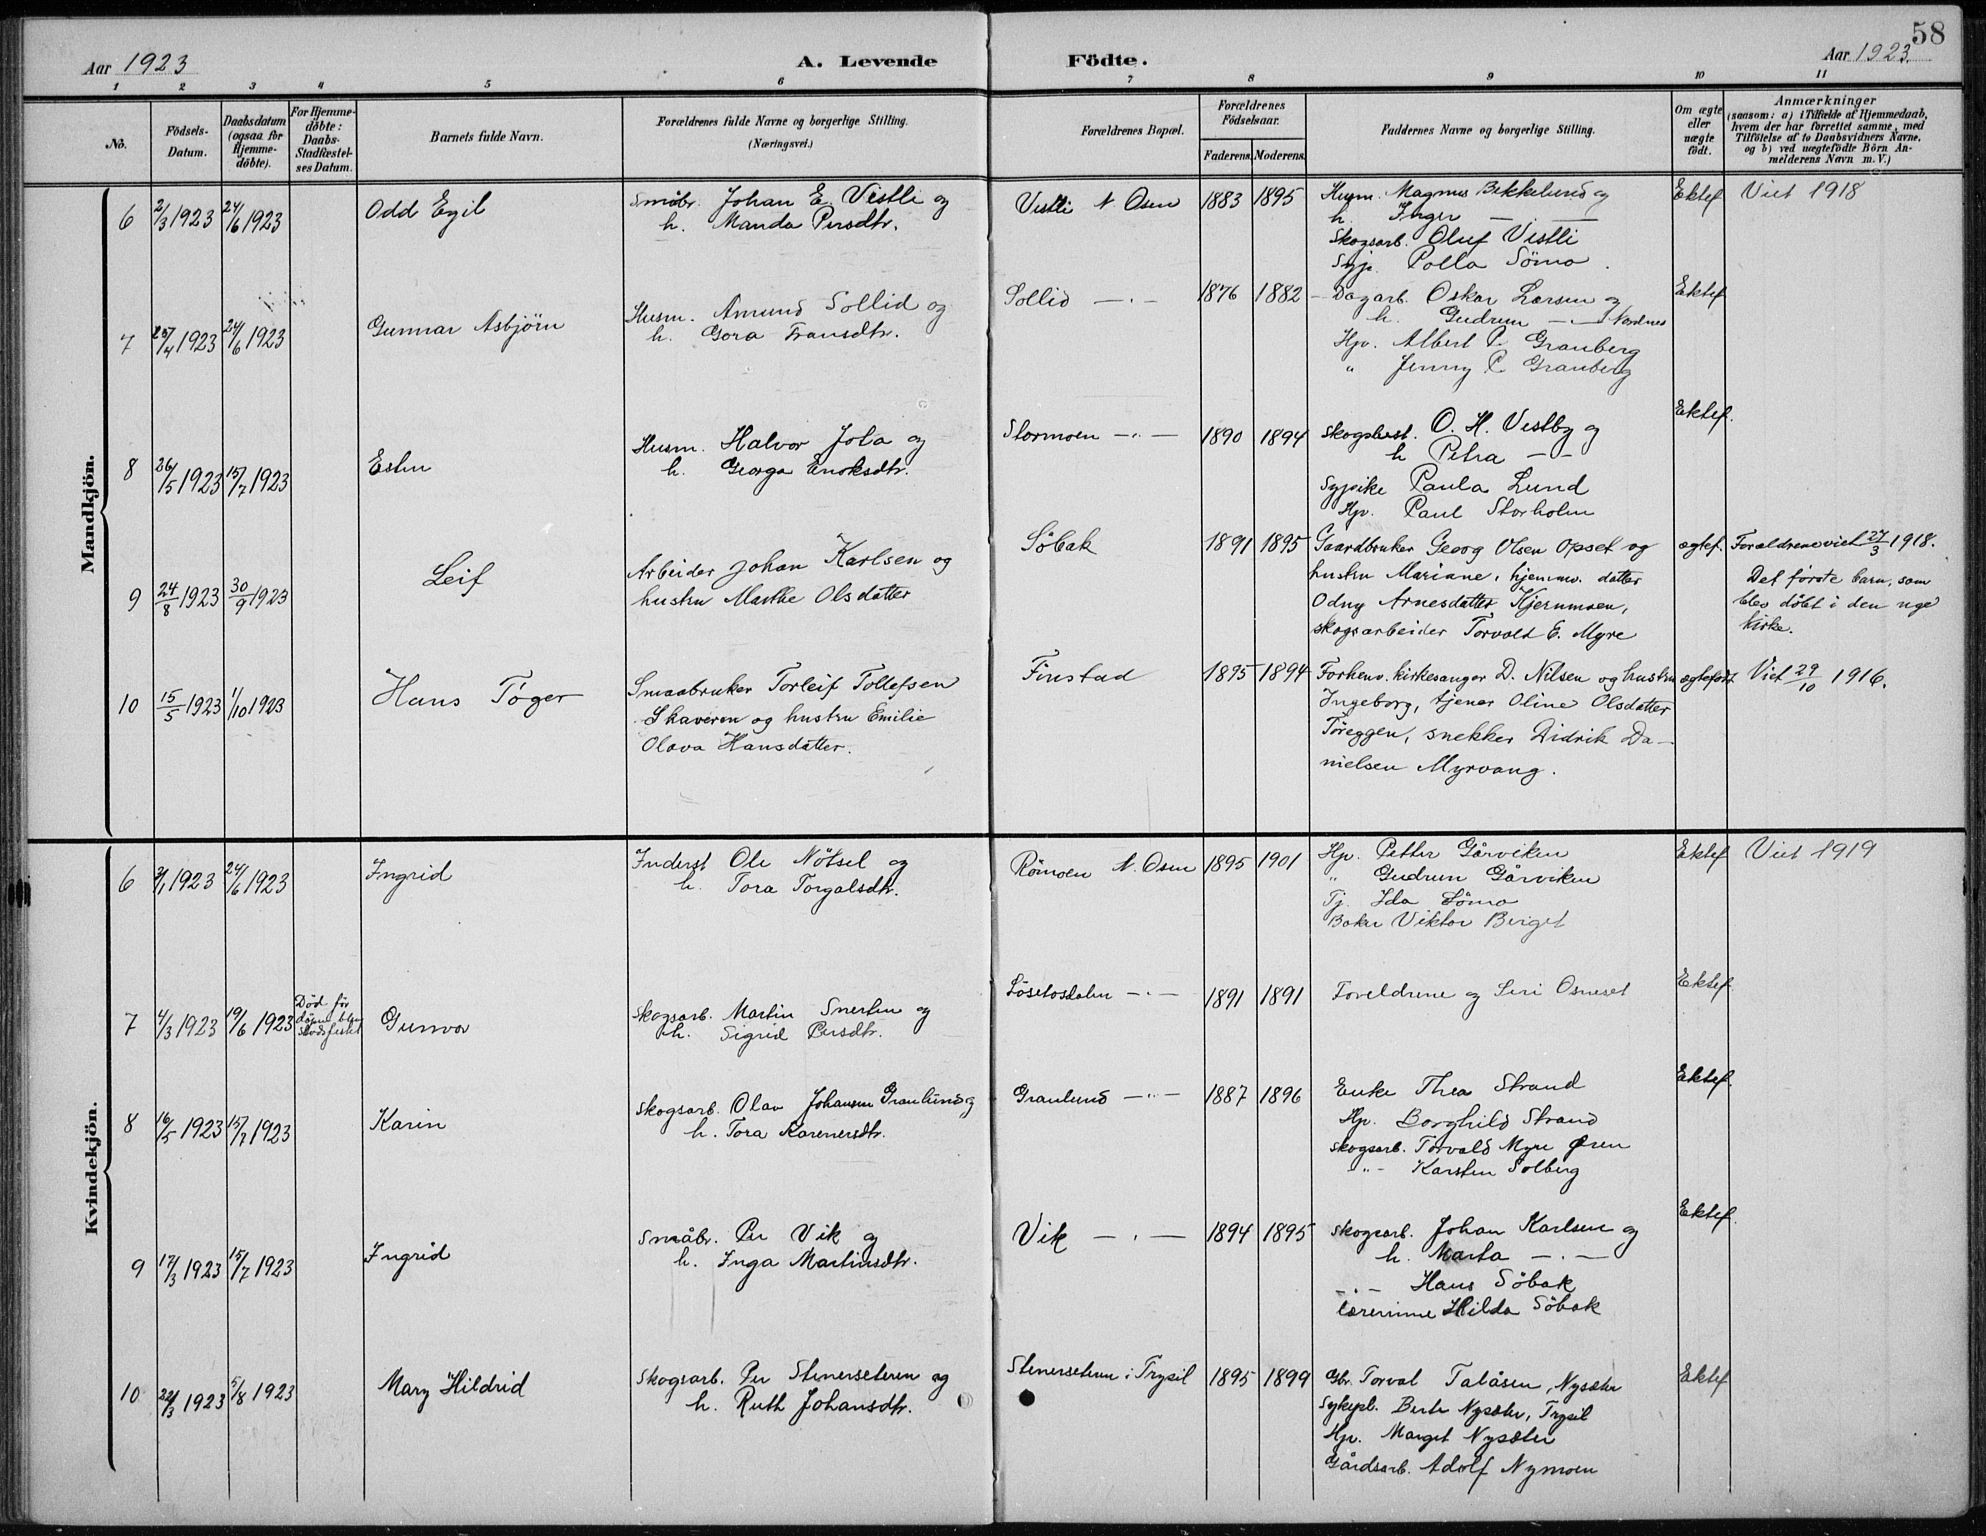 58
Aar 1923
A. Levende Födte.
Aar 1923.
1 2 3 4 5 6 7 8 9 10 11
No.
Födsels-Datum.
Daabsdatum (ogsaa for Hjemme-döbte).
For Hjemme-döbte: Daabs-Stadfæstel-ses Datum.
Barnets fulde Navn.
Forældrenes fulde Navne og borgerlige Stilling.
(Næringsvei.)
Forældrenes Bopæl.
Forældrenes Födselsaar.
Faderens. Moderens.
Faddernes Navne og borgerlige Stilling.
Om ægte eller uægte födt.
Anmærkninger
(saasom: a) i Tilfælde af Hjemmedaab,
hvem der har forrettet samme, med
Tilföielse af to Daabsvidners Navne,
og b) ved uægtefödte Börn An-
melderens Navn m.V.)
Mandkjön.
6 2/3 1923 24/6 1923 Odd Egil
Småbr. Johan E. Vistli og
h. Manda Persdtr.
Vistli N Osen 1883 1895
Husm. Magnus Bekkelund og
h. Inger — —
Skogsarb. Oluf Vistli
Syp. Polla Sömo.
Ektef Viet 1918
7 25/4 1923 24/6 1923 Gunnar Asbjörn
Husm. Amund Sollid og
h. Gora Fransdtr.
Sollid —·— 1876 1882
Dagarb. Oskar Larsen og
h. Gudrun —·— Nordnes
Hpv. Albert P. Granberg
" Jenny P. Granberg
Ektef
8 26/5 1923 15/7 1923 Esten
Husm. Halvor Jota og
h. Georga Enoksdtr.
Stormoen —·— 1890 1894
Skogsbest. O. H. Vestby og
h Petra — —
Sypike Paula Lund
Hpv. Paul Storholm
Ektef.
9 24/8 1923 30/9 1923 Leif
Arbeider Johan Karlsen og
hustru Marthe Olsdatter
Söbak 1891 1895
Gaardbruker Georg Olsen Opset og
hustru Mariane, hjemmv. datter
Odny Arnesdatter Kjernmoen,
skogsarbeider Torvald E. Myre
ægtef. Foraldrene viet 27/3 1918.
Det første barn, som
blev döbt i den nye
kirke.
10 15/5 1923 1/10 1923 Hans Tøger
Smaabruker Torleif Tollefsen
Skaveren og hustru Emilie
Olava Hansdatter.
Finstad 1895 1894
Forhenv. kirkesanger D. Nilsen og hustru
Ingeborg, tjener Oline Olsdatter
Tøreggen, snekker Didrik Da-
nielsen Myrvang.
ægtefödt Viet 29/10 1916.
Kvindekjön.
6 9/1 1923 24/6 1923 Ingrid
Inderst Ole Nötsel og
h. Tora Torgalsdtr.
Römoen N. Osen 1895 1901
Hp. Petter Gårviken
" Gudrun Gårviken
Tj. Ida Sömo
Baker Viktor Berget
Ektef Viet 1919
7 4/3 1923 19/6 1923
Död før
Gunvor
Skogsarb. Martin Snerten og
h. Sigrid Persdtr.
Lösetosdalen —·— 1891 1891
Foreldrene og Siri Osneset
Ektef
8 16/5 1923 15/7 1923 Karin
Skogsarb. Olav Johansen Granlund og
h. Tora Karenersdtr.
Granlund —·— 1887 1896
Enke Thea Strand
Hp. Borghild Strand
Skogsarb. Torvald Myre Øren
—"— Karsten Solberg
Ektef.
9 17/3 1923 15/7 1923 Ingrid
Småbr. Per Vik og
h. Inga Martinsdtr.
Vik —·— 1894 1895
Skogsarb. Johan Karlsen og
h. Marta —·—
—·— Hans Söbak
Lærerinne Hilda Söbak
Ektef.
10 22/3 1923 5/8 1923 Mary Hildrid
Skogsarb. Per Stenerseteren og
h. Ruth Johansdtr.
Stenerseteren i Trysil 1895 1899
Gbr. Torval Talåsen, Nysæter
Sykepl. Berte Nysæter, Trysil
Hpv. Margit Nysæter
Gårdsarb. Adolf Nymoen
Ektef